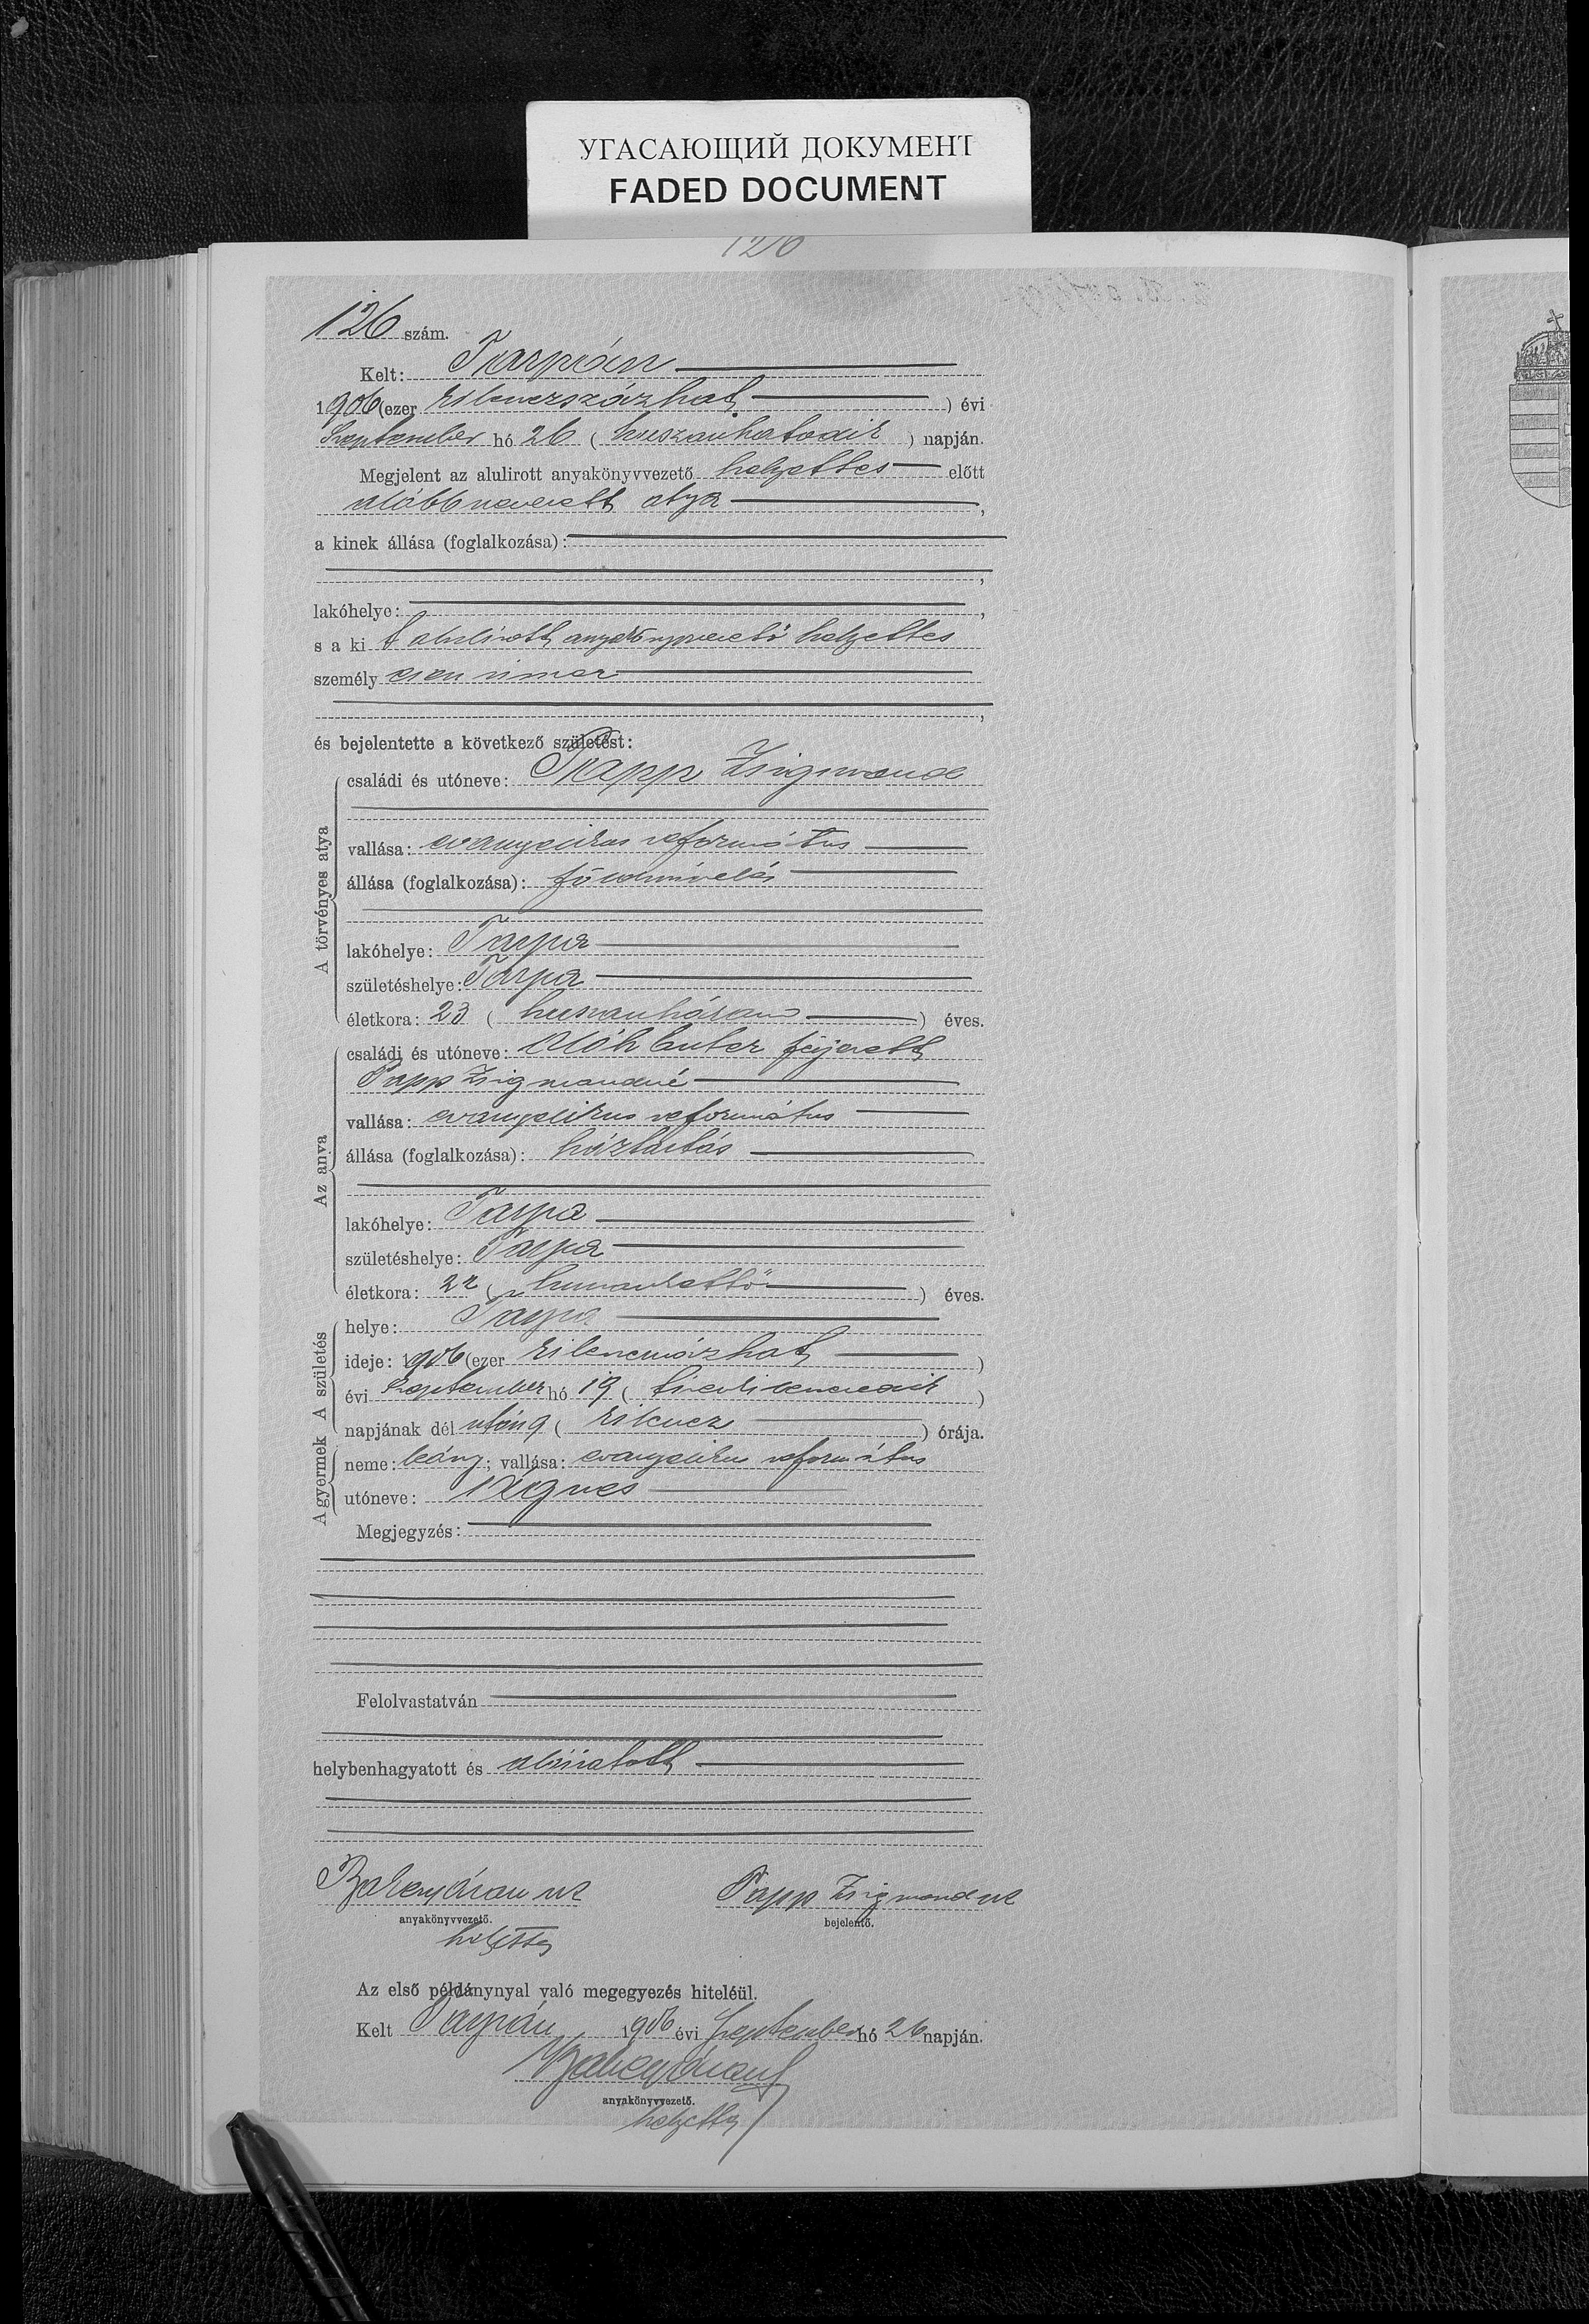 УГАСАЮЩИЙ ДОКУМЕНТ
FADED DOCUMENT
126
126 szám.
Kelt: Tarpán
1906 (ezer kilenczszázhat) évi
Szeptember hó 26 (huszonhatodik) napján.
Megjelent az alulirott anyakönyvvezető helyettes előtt
alább nevezett atya,
a kinek állása (foglalkozása):
,
lakóhelye: ,
s a ki t alulirott anyakönyvvezető helyettes
személyesen ismer
,
és bejelentette a következő születést:
A törvényes atya
családi és utóneve: Papp Zsigmond
vallása: evangelikus református
állása (foglalkozása): földmívelés
lakóhelye: Tarpa
születéshelye: Tarpa
életkora: 23 (huszonhárom) éves.
Az anya
családi és utóneve: Oláh Eszter férjezett
Papp Zsigmondné
vallása: evangelikus református
állása (foglalkozása): háztartás
lakóhelye: Tarpa
születéshelye: Tarpa
életkora: 22 (huszonkettő) éves.
A születés
helye: Tarpa
ideje: 1906 (ezer kilenczszázhat)
évi Szeptember hó 19 (tizenkilenczedik)
napjának dél után 9 (kilencz) órája.
A gyermek
neme: leány; vallása: evangelikus református
utóneve: Ágnes
Megjegyzés:
Felolvastatván
helybenhagyatott és aláiratott
Papp Zsigmond sk
anyakönyvvezető. bejelentő.
helyettes
Az első példánynyal való megegyezés hiteléül.
Kelt Tarpán 1906 évi Szeptember hó 26 napján.
anyakönyvvezető.
helyettes